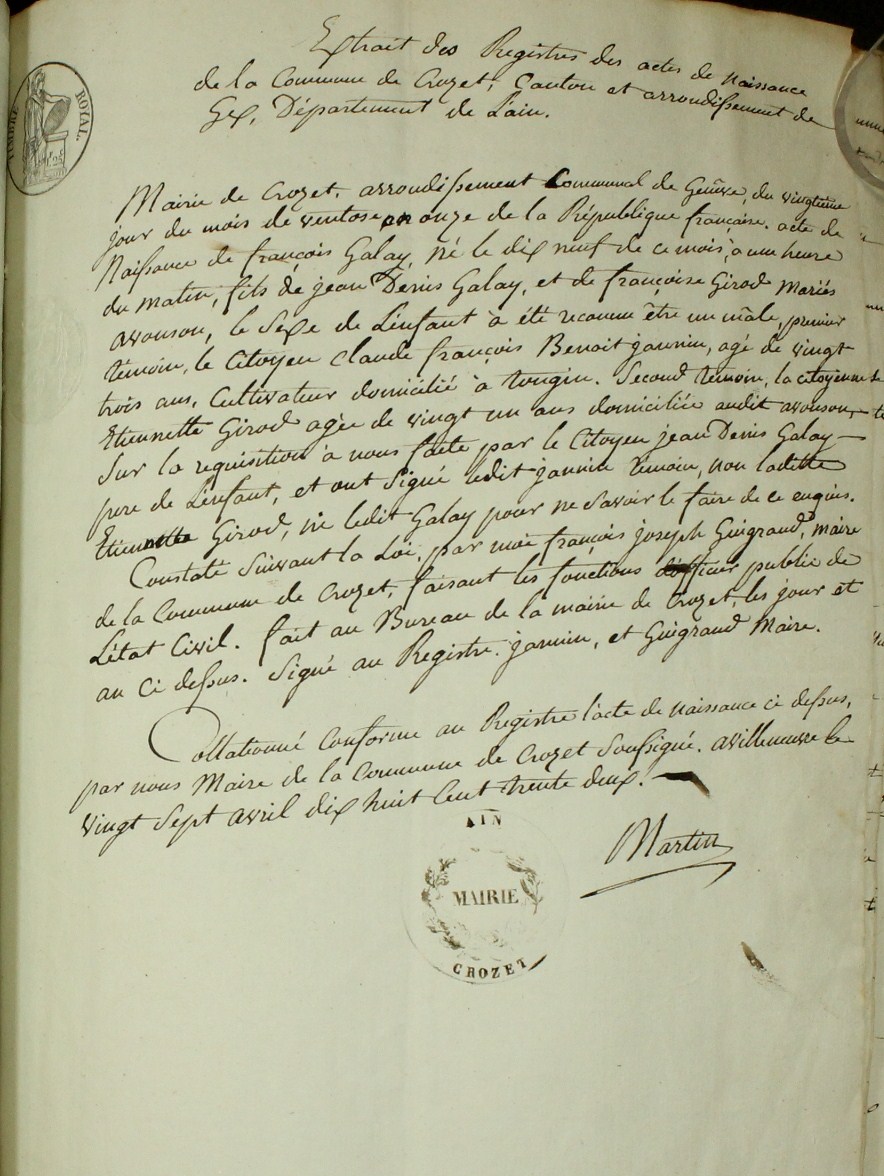 TIMBRE ROYAL.
Extrait des Registres des actes de Naissance
de la Commune de Crozet, Canton et arrondissement de
Gex, Département de L'ain.
Mairie de Crozet, arrondissement Communal de Genève, du vingtième
jour du mois de ventose an onze de la République française. acte de
Naissance de françois Galay, né le dix neuf de ce mois, à une heure
du matin, fils de jean Denis Galay, et de françoise Girod Mariés
avouson, le Sexe de L'enfant à été reconnu être un mâle, premier
témoin, le Citoyen Claude françois Benoit jannin, agé de vingt
trois ans, Cultivateur domicilié à tougin. Second témoin, la citoyenne
Etiennette Girod agée de vingt un ans domiciliée audit avouson,
Sur la requisition à nous faite par le Citoyen jean Denis Galay
pere de L'enfant, et ont Signé ledit jannin témoin, non laditte
Etiennette Girod, ni ledit Galay pour ne savoir le faire de ce enquis.
Constaté Suivant la Loi, par moi françois joseph Guigrand, Maire
de la Commune de Crozet, faisant les fonctions d'officier public de
L'état Civil. fait au Bureau de la mairie de Crozet, les jour et
an ci dessus. Signé au Registre. jannin, et Guigrand Maire.
Collationné Conforme au Registre l'acte de naissance ci dessus,
par nous Maire de la Commune de Crozet Soussigné. avilleneuve le
vingt Sept avril dix huit Cent trente deux.
Martin
AIN
MAIRIE
CROZET